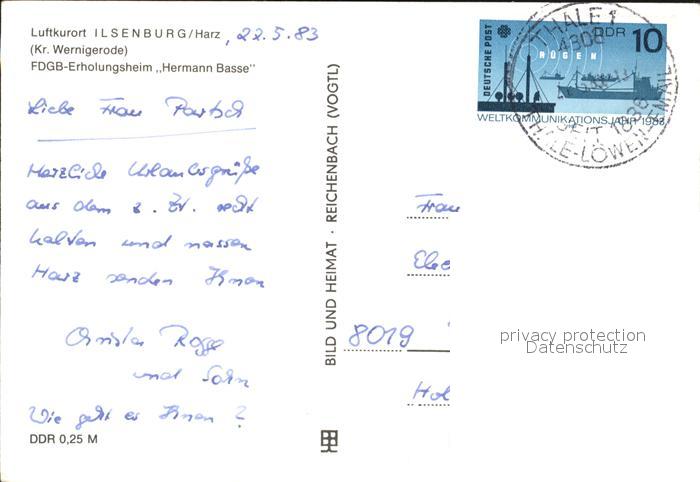 Luftkurort ILSENBURG/Harz , 22.5.83
(Kr. Wernigerode)
FDGB-Erholungsheim „Hermann Basse"
Liebe Frau Partsch
Herzliche Urlaubsgrüße
aus dem z. Zt. recht
kalten und nassen
Harz senden Ihnen
Christa Rogge
und Sohn
Wie geht es Ihnen?
DDR 0,25 M
BILD UND HEIMAT · REICHENBACH (VOGTL)
DEUTSCHE POST
DDR 10
RÜGEN
WELTKOMMUNIKATIONSJAHR 1983
THALE 1
4308
SEIT 1836
THALE-LÖWEN-EMAIL
Frau
8019
Hol
privacy protection
Datenschutz